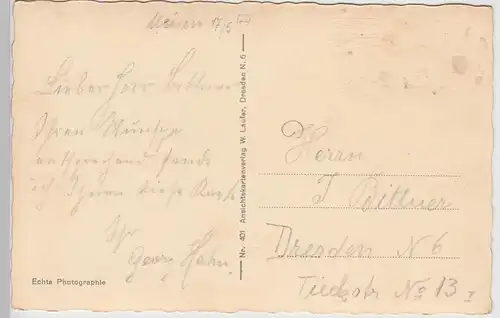 Meissen 17/5
Lieber Herr Bittner
Ihrem Wunsche
entsprechend sende
ich Ihnen diese Karte
Ihr
Georg Hahn.
Echte Photographie
Nr. 401 Ansichtskartenverlag W. Laufer, Dresden N. 6
Herrn
J Bittner
Dresden N 6
Tieckstr No 13 I